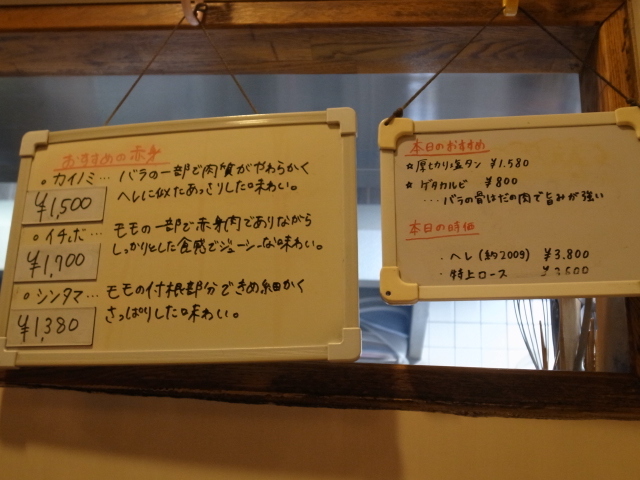 おすすめの赤身
○ カイノミ… バラの一部で肉質がやわらかく
ヘレに似たあっさりした味わい。
¥1,500
○ イチボ… モモの一部で赤身肉でありながら
しっかりとした食感でジューシーな味わい。
¥1,700
○ シンタマ… モモの付根部分できめ細かく
さっぱりした味わい。
¥1,380
本日のおすすめ
☆ 厚切り塩タン ¥1.580
☆ ゲタカルビ ¥800
…バラの骨はだの肉で旨みが強い
本日の時価
・ヘレ(約200g) ¥3.800
・特上ロース